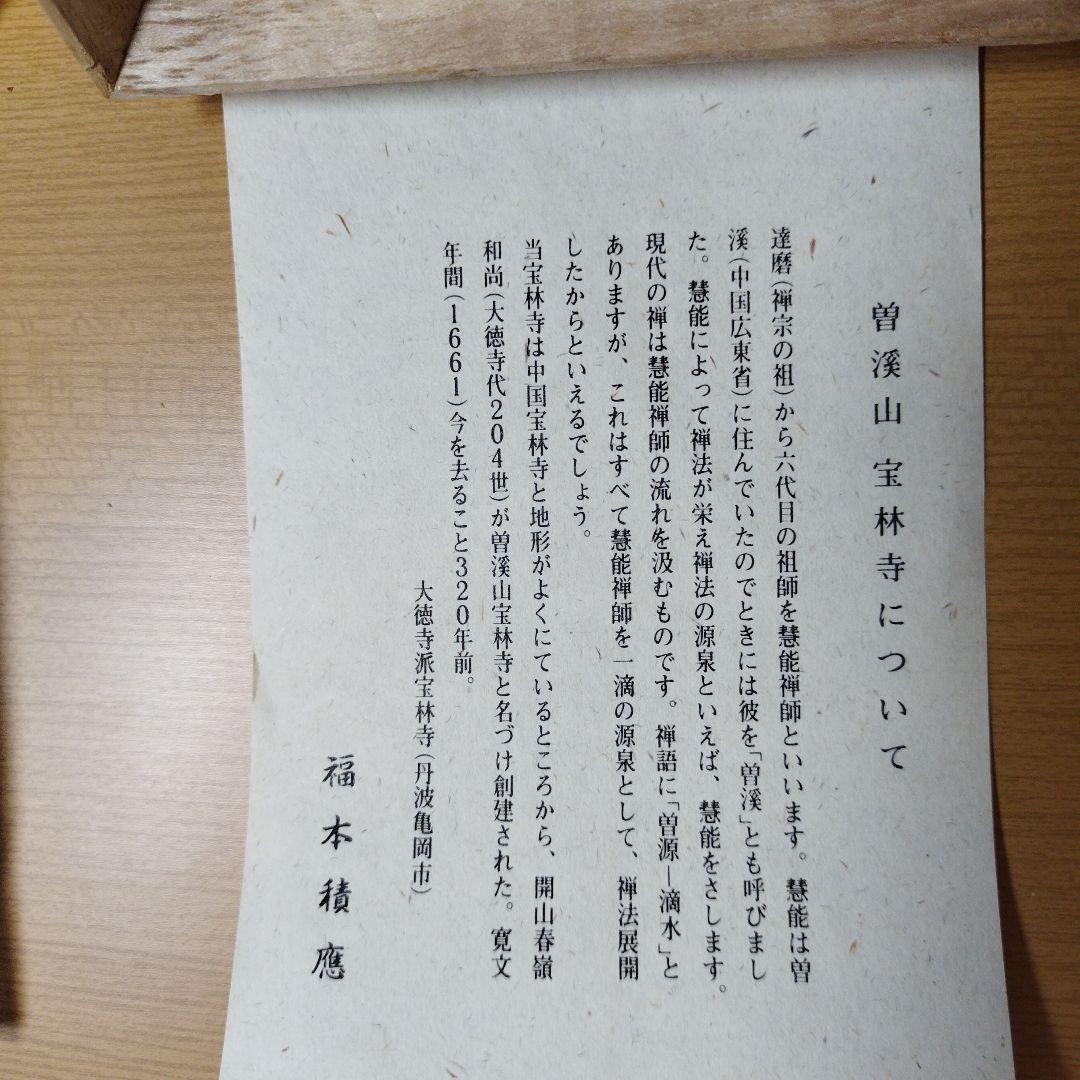 曽溪山宝林寺について
達磨(禅宗の祖)から六代目の祖師を慧能禅師といいます。慧能は曽
溪(中国広東省)に住んでいたのでときには彼を「曽溪」とも呼びまし
た。慧能によって禅法が栄え禅法の源泉といえば、慧能をさします。
現代の禅は慧能禅師の流れを汲むものです。禅語に「曽源一滴水」と
ありますが、これはすべて慧能禅師を一滴の源泉として、禅法展開
したからといえるでしょう。
当宝林寺は中国宝林寺と地形がよくにているところから、開山春嶺
和尚(大徳寺代204世)が曽溪山宝林寺と名づけ創建された。寛文
年間(1661)今を去ること320年前。
大徳寺派宝林寺(丹波亀岡市)
福本積應